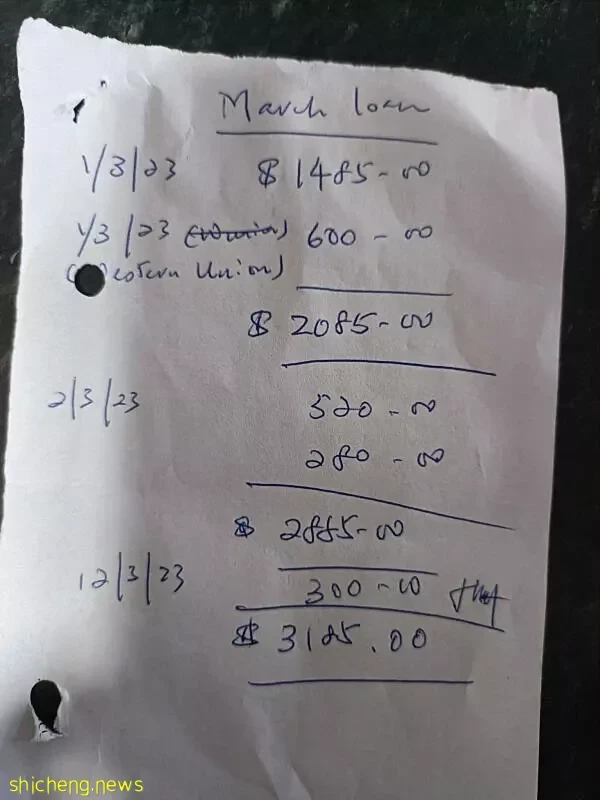 March loan
1/3/23 $ 1485-00
1/3/23 600-00
(Western Union)
$ 2085-00
2/3/23 520-00
280-00
$ 2885-00
12/3/23 300-00
$ 3185.00
shicheng.news